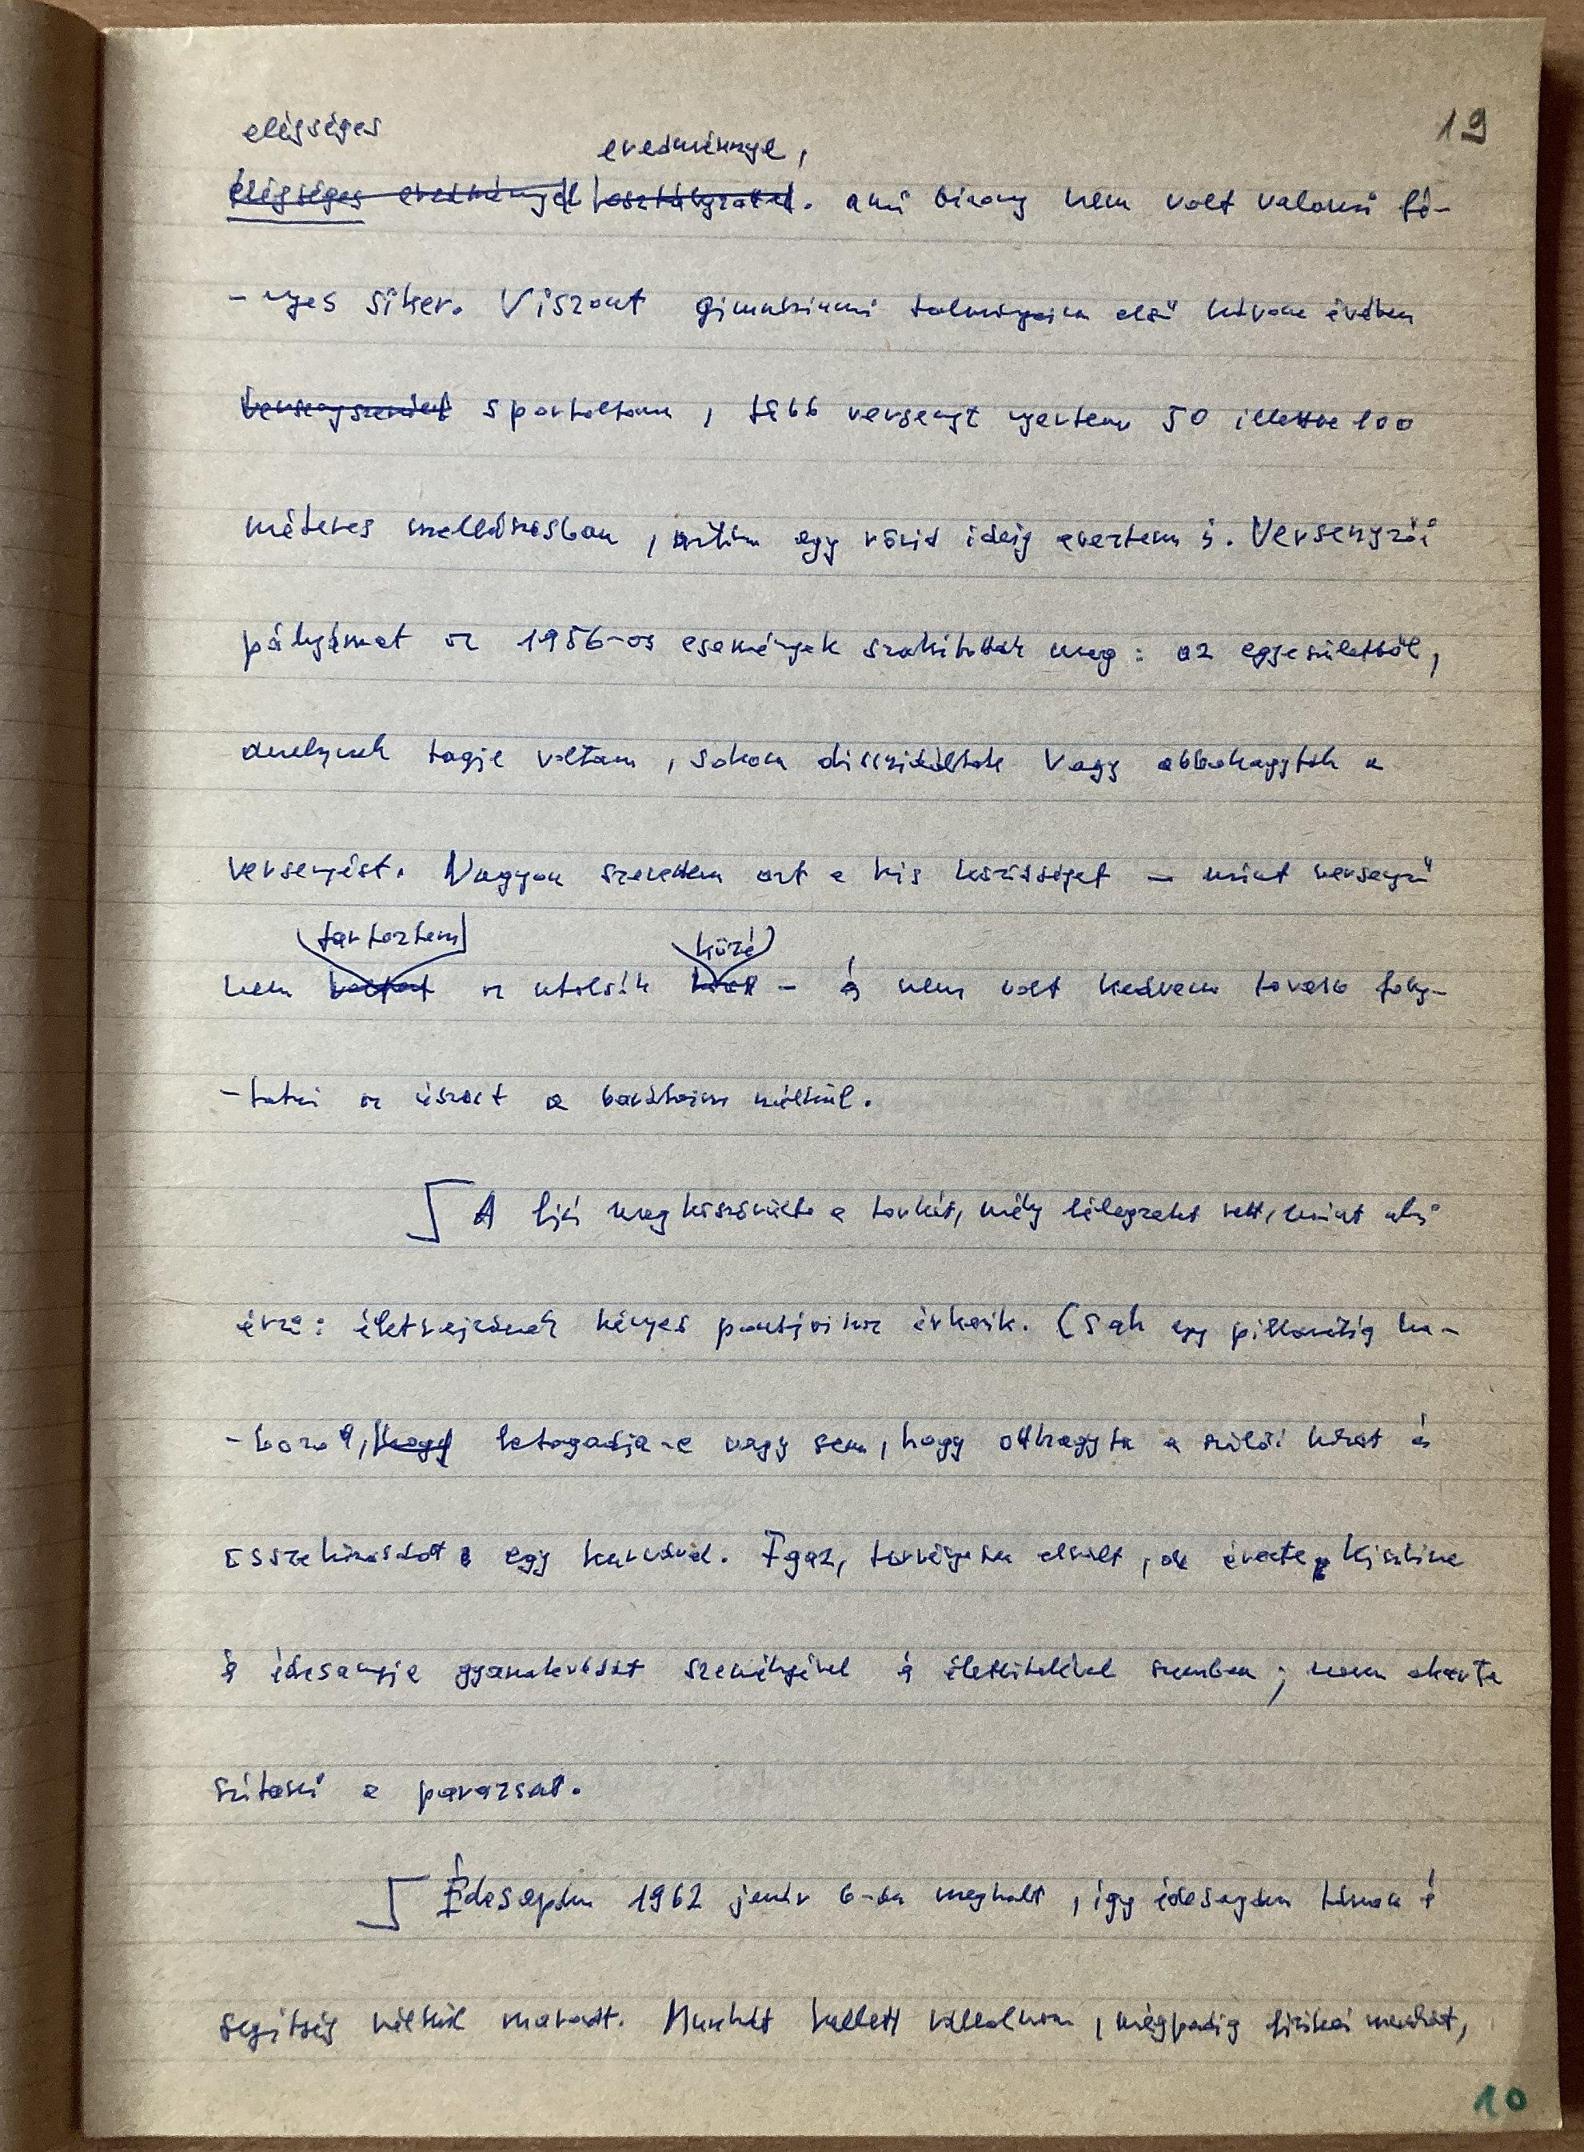 19
elégséges eredménye,
elégséges eredményel osztályzattal. ami bizony nem volt valami fé-
-nyes siker. Viszont gimnáziumi tanulmányaim első három évében
versenyszerűen sportoltam, több versenyt nyertem 50 illetve 100
méteres mellúszásban, aztán egy rövid ideig eveztem is. Versenyzői
pályámat az 1956-os események szakították meg: az egyesületből,
amelynek tagja voltam, sokan disszidáltak vagy abbahagyták a
versenyzést. Nagyon szerettem ezt a kis közösséget – mint versenyző
tartoztam közé
nem voltam az utolsók közt – és nem volt kedvem tovább foly-
-tatni az úszást a barátaim nélkül.
A fiú megköszörülte a torkát, mély lélegzetet vett, mint aki
érzi: életrajzának kényes pontjaihoz érkezik. Csak egy pillanatig ha-
-bozott, hogy letagadja-e vagy sem, hogy otthagyta a szülői házat és
összeházasodott egy kurvával. Igaz, törvényesen elvált, de érezte Krisztina
és édesanyja gyanakvását személyével és életvitelével szemben; nem akarta
szítani a parazsat.
Édesapám 1962 január 6-án meghalt, így édesanyám támasz és
segítség nélkül maradt. Munkát kellett vállalnom, mégpedig fizikai munkát,
10